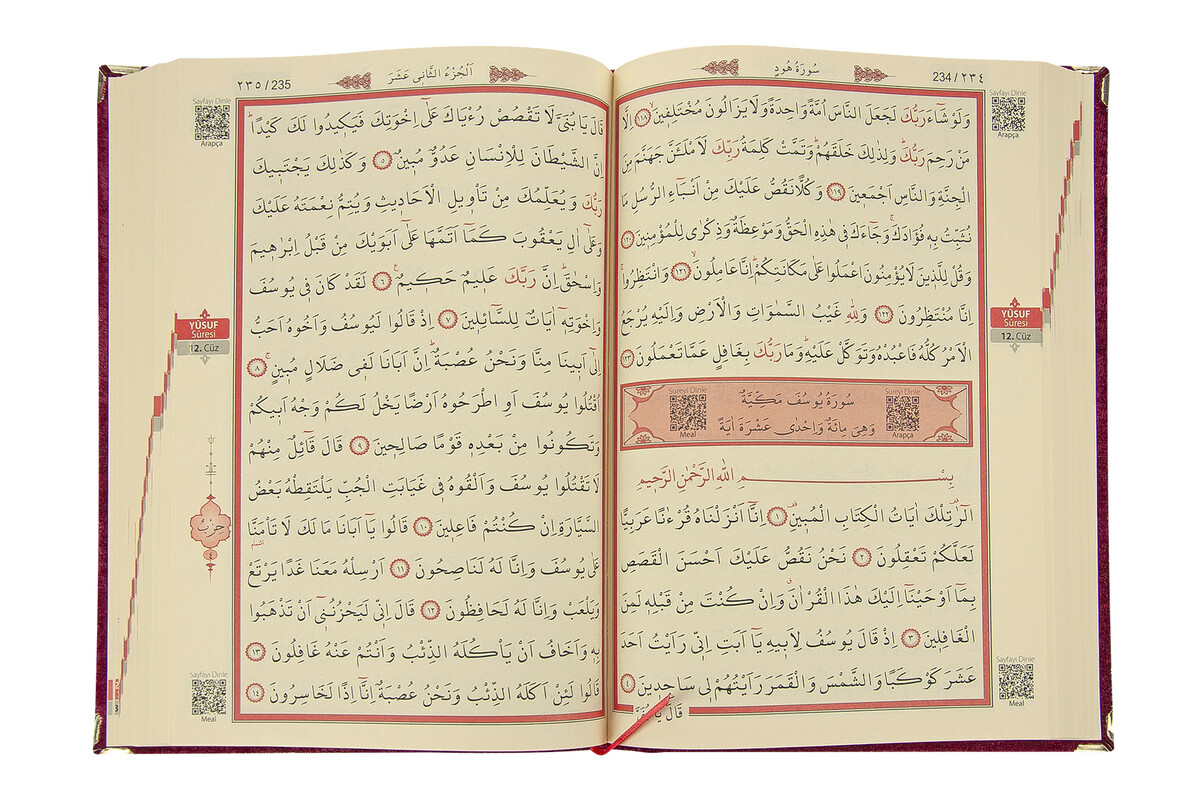 234 / ٢٣٤
سُورَةُ هُودٍ
Sayfayı Dinle
Arapça
وَلَوْ شَٓاءَ رَبُّكَ لَجَعَلَ النَّاسَ اُمَّةً وَاحِدَةً وَلَا يَزَالُونَ مُخْتَلِفٖينَۙ ﴿١١٨﴾ اِلَّا
مَنْ رَحِمَ رَبُّكَۜ وَلِذٰلِكَ خَلَقَهُمْۜ وَتَمَّتْ كَلِمَةُ رَبِّكَ لَاَمْلَـَٔنَّ جَهَنَّمَ مِنَ
الْجِنَّةِ وَالنَّاسِ اَجْمَعٖينَ ﴿١١٩﴾ وَكُلًّا نَقُصُّ عَلَيْكَ مِنْ اَنْبَٓاءِ الرُّسُلِ مَا
نُثَبِّتُ بِهٖ فُؤٰادَكَۚ وَجَٓاءَكَ فٖي هٰذِهِ الْحَقُّ وَمَوْعِظَةٌ وَذِكْرٰى لِلْمُؤْمِنٖينَ ﴿١٢٠﴾
وَقُلْ لِلَّذٖينَ لَا يُؤْمِنُونَ اعْمَلُوا عَلٰى مَكَانَتِكُمْۜ اِنَّا عَامِلُونَۙ ﴿١٢١﴾ وَانْتَظِرُواۚ
اِنَّا مُنْتَظِرُونَ ﴿١٢٢﴾ وَلِلّٰهِ غَيْبُ السَّمٰوَاتِ وَالْاَرْضِ وَاِلَيْهِ يُرْجَعُ
الْاَمْرُ كُلُّهُ فَاعْبُدْهُ وَتَوَكَّلْ عَلَيْهِۜ وَمَا رَبُّكَ بِغَافِلٍ عَمَّا تَعْمَلُونَ ﴿١٢٣﴾
YÛSUF
Sûresi
12. Cüz
Sureyi Dinle
Arapça
سُورَةُ يُوسُفَ مَكِّيَّةٌ
وَهِيَ مِائَةٌ وَاِحْدٰى عَشْرَةَ اٰيَةً
Sureyi Dinle
Meal
بِسْمِ اللّٰهِ الرَّحْمٰنِ الرَّحٖيمِ
الٓرٰ۠ تِلْكَ اٰيَاتُ الْكِتَابِ الْمُبٖينِ۠ ﴿١﴾ اِنَّٓا اَنْزَلْنَاهُ قُرْءٰنًا عَرَبِيًّا
لَعَلَّكُمْ تَعْقِلُونَ ﴿٢﴾ نَحْنُ نَقُصُّ عَلَيْكَ اَحْسَنَ الْقَصَصِ
بِمَٓا اَوْحَيْنَٓا اِلَيْكَ هٰذَا الْقُرْاٰنَۗ وَاِنْ كُنْتَ مِنْ قَبْلِهٖ لَمِنَ
الْغَافِلٖينَ ﴿٣﴾ اِذْ قَالَ يُوسُفُ لِاَبٖيهِ يَٓا اَبَتِ اِنّٖي رَاَيْتُ اَحَدَ
عَشَرَ كَوْكَبًا وَالشَّمْسَ وَالْقَمَرَ رَاَيْتُهُمْ لٖي سَاجِدٖينَ ﴿٤﴾
قَالَ
Sayfayı Dinle
Meal
٢٣٥ / 235
اَلْجُزْءُ الثَّانٖي عَشَرَ
Sayfayı Dinle
Arapça
قَالَ يَا بُنَيَّ لَا تَقْصُصْ رُءْيَاكَ عَلٰٓى اِخْوَتِكَ فَيَكٖيدُوا لَكَ كَيْدًاۜ
اِنَّ الشَّيْطَانَ لِلْاِنْسَانِ عَدُوٌّ مُبٖينٌ ﴿٥﴾ وَكَذٰلِكَ يَجْتَبٖيكَ
رَبُّكَ وَيُعَلِّمُكَ مِنْ تَأْوٖيلِ الْاَحَادٖيثِ وَيُتِمُّ نِعْمَتَهُ عَلَيْكَ
وَعَلٰٓى اٰلِ يَعْقُوبَ كَمَٓا اَتَمَّهَا عَلٰٓى اَبَوَيْكَ مِنْ قَبْلُ اِبْرٰهٖيمَ
وَاِسْحٰقَۜ اِنَّ رَبَّكَ عَلٖيمٌ حَكٖيمٌ۟ ﴿٦﴾ لَقَدْ كَانَ فٖي يُوسُفَ
وَاِخْوَتِهٖٓ اٰيَاتٌ لِلسَّٓائِلٖينَ ﴿٧﴾ اِذْ قَالُوا لَيُوسُفُ وَاَخُوهُ اَحَبُّ
اِلٰٓى اَبٖينَا مِنَّا وَنَحْنُ عُصْبَةٌۜ اِنَّ اَبَانَا لَفٖي ضَلَالٍ مُبٖينٍۚ ﴿٨﴾
اُقْتُلُوا يُوسُفَ اَوِ اطْرَحُوهُ اَرْضًا يَخْلُ لَكُمْ وَجْهُ اَبٖيكُمْ
وَتَكُونُوا مِنْ بَعْدِهٖ قَوْمًا صَالِحٖينَ ﴿٩﴾ قَالَ قَٓائِلٌ مِنْهُمْ
لَا تَقْتُلُوا يُوسُفَ وَاَلْقُوهُ فٖي غَيَابَتِ الْجُبِّ يَلْتَقِطْهُ بَعْضُ
السَّيَّارَةِ اِنْ كُنْتُمْ فَاعِلٖينَ ﴿١٠﴾ قَالُوا يَٓا اَبَانَا مَا لَكَ لَا تَأْمَنَّا
عَلٰى يُوسُفَ وَاِنَّا لَهُ لَنَاصِحُونَ ﴿١١﴾ اَرْسِلْهُ مَعَنَا غَدًا يَرْتَعْ
وَيَلْعَبْ وَاِنَّا لَهُ لَحَافِظُونَ ﴿١٢﴾ قَالَ اِنّٖي لَيَحْزُنُنٖٓي اَنْ تَذْهَبُوا
بِهٖ وَاَخَافُ اَنْ يَأْكُلَهُ الذِّئْبُ وَاَنْتُمْ عَنْهُ غَافِلُونَ ﴿١٣﴾
قَالُوا لَئِنْ اَكَلَهُ الذِّئْبُ وَنَحْنُ عُصْبَةٌ اِنَّٓا اِذًا لَخَاسِرُونَ ﴿١٤﴾
YÛSUF
Sûresi
12. Cüz
حِزْبُ
٤
Sayfayı Dinle
Meal